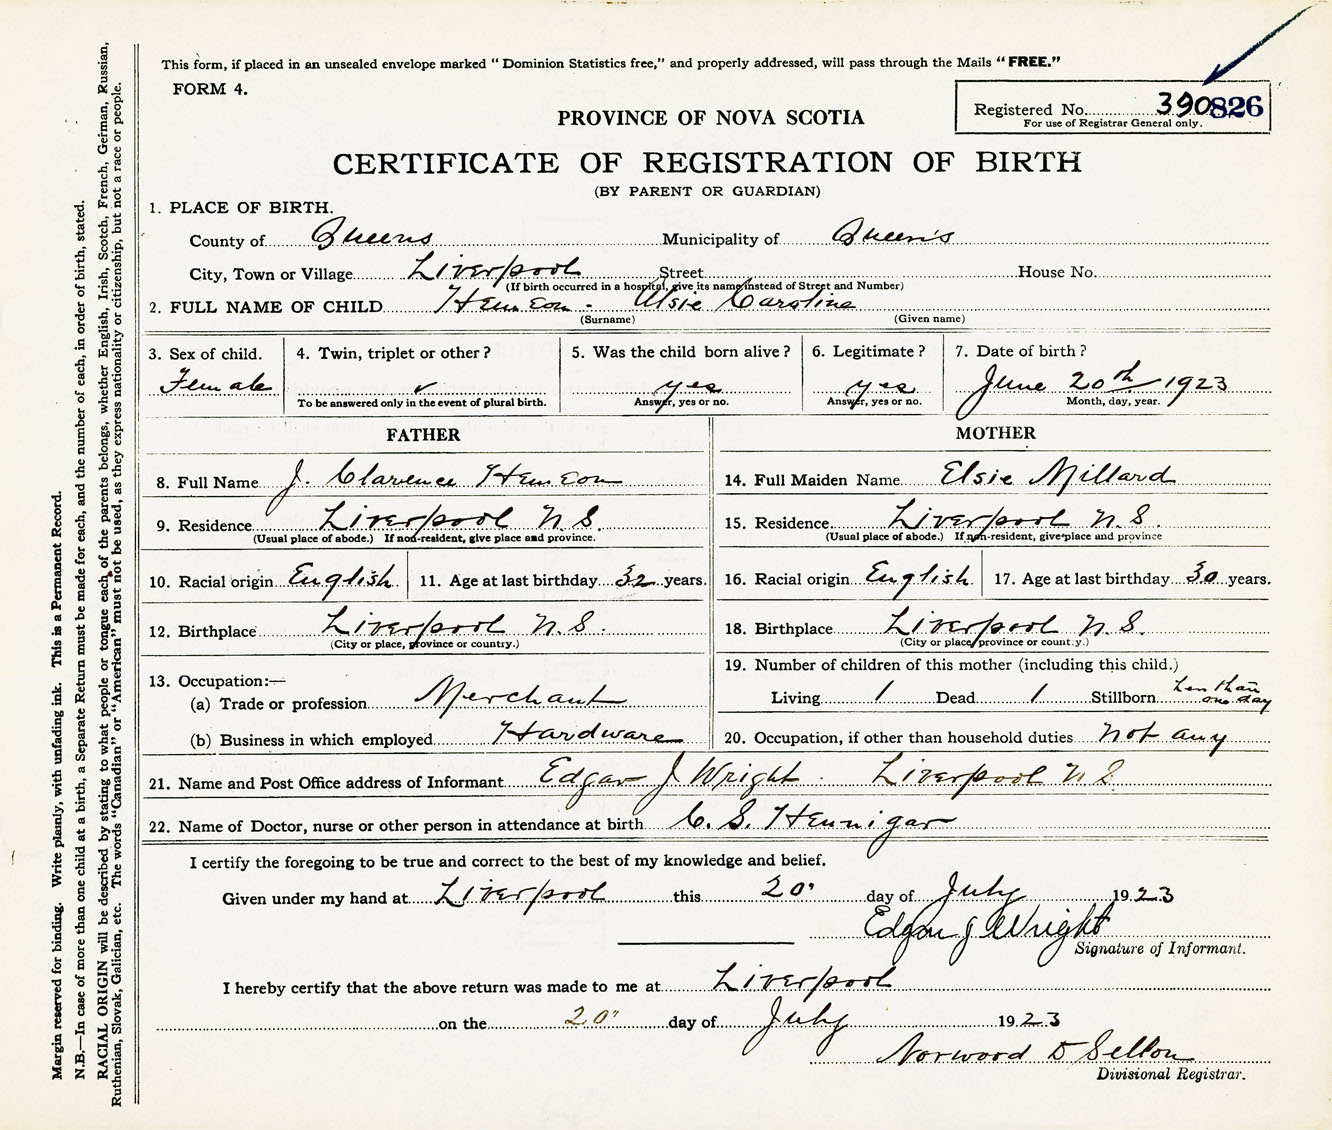 This form, if placed in an unsealed envelope marked " Dominion Statistics free," and properly addressed, will pass through the Mails " FREE."
FORM 4.
Registered No. 390 826
For use of Registrar General only.
PROVINCE OF NOVA SCOTIA
CERTIFICATE OF REGISTRATION OF BIRTH
(BY PARENT OR GUARDIAN)
1. PLACE OF BIRTH.
County of Queens Municipality of Queen's
City, Town or Village Liverpool Street House No.
(If birth occurred in a hospital, give its name instead of Street and Number)
2. FULL NAME OF CHILD Hemeon - Elsie Caroline
(Surname) (Given name)
3. Sex of child. 4. Twin, triplet or other ? 5. Was the child born alive ? 6. Legitimate ? 7. Date of birth ?
Female ✓ yes yes June 20th 1923
To be answered only in the event of plural birth. Answer, yes or no. Answer, yes or no. Month, day, year.
FATHER MOTHER
8. Full Name J. Clarence Hemeon 14. Full Maiden Name Elsie Millard
9. Residence Liverpool N.S. 15. Residence Liverpool N.S.
(Usual place of abode.) If non-resident, give place and province. (Usual place of abode.) If non-resident, give place and province
10. Racial origin English 11. Age at last birthday 32 years. 16. Racial origin English 17. Age at last birthday 30 years.
12. Birthplace Liverpool N.S. 18. Birthplace Liverpool N.S.
(City or place, province or country.) (City or place, province or country.)
19. Number of children of this mother (including this child.)
13. Occupation:—
(a) Trade or profession Merchant Living 1 Dead 1 Stillborn than one day
(b) Business in which employed Hardware 20. Occupation, if other than household duties not any
21. Name and Post Office address of Informant Edgar J Wright. Liverpool N.S.
22. Name of Doctor, nurse or other person in attendance at birth C. S. Hennigar
I certify the foregoing to be true and correct to the best of my knowledge and belief.
Given under my hand at Liverpool this 20" day of July 1923
Edgar J Wright
Signature of Informant.
I hereby certify that the above return was made to me at Liverpool
on the 20" day of July 1923
Norwood D Sellon
Divisional Registrar.
Margin reserved for binding. Write plainly, with unfading ink. This is a Permanent Record.
N.B.—In case of more than one child at a birth, a Separate Return must be made for each, and the number of each, in order of birth, stated.
RACIAL ORIGIN will be described by stating to what people or tongue each of the parents belongs, whether English, Irish, Scotch, French, German, Russian,
Ruthenian, Slovak, Galician, etc. The words "Canadian" or "American" must not be used, as they express nationality or citizenship, but not a race or people.